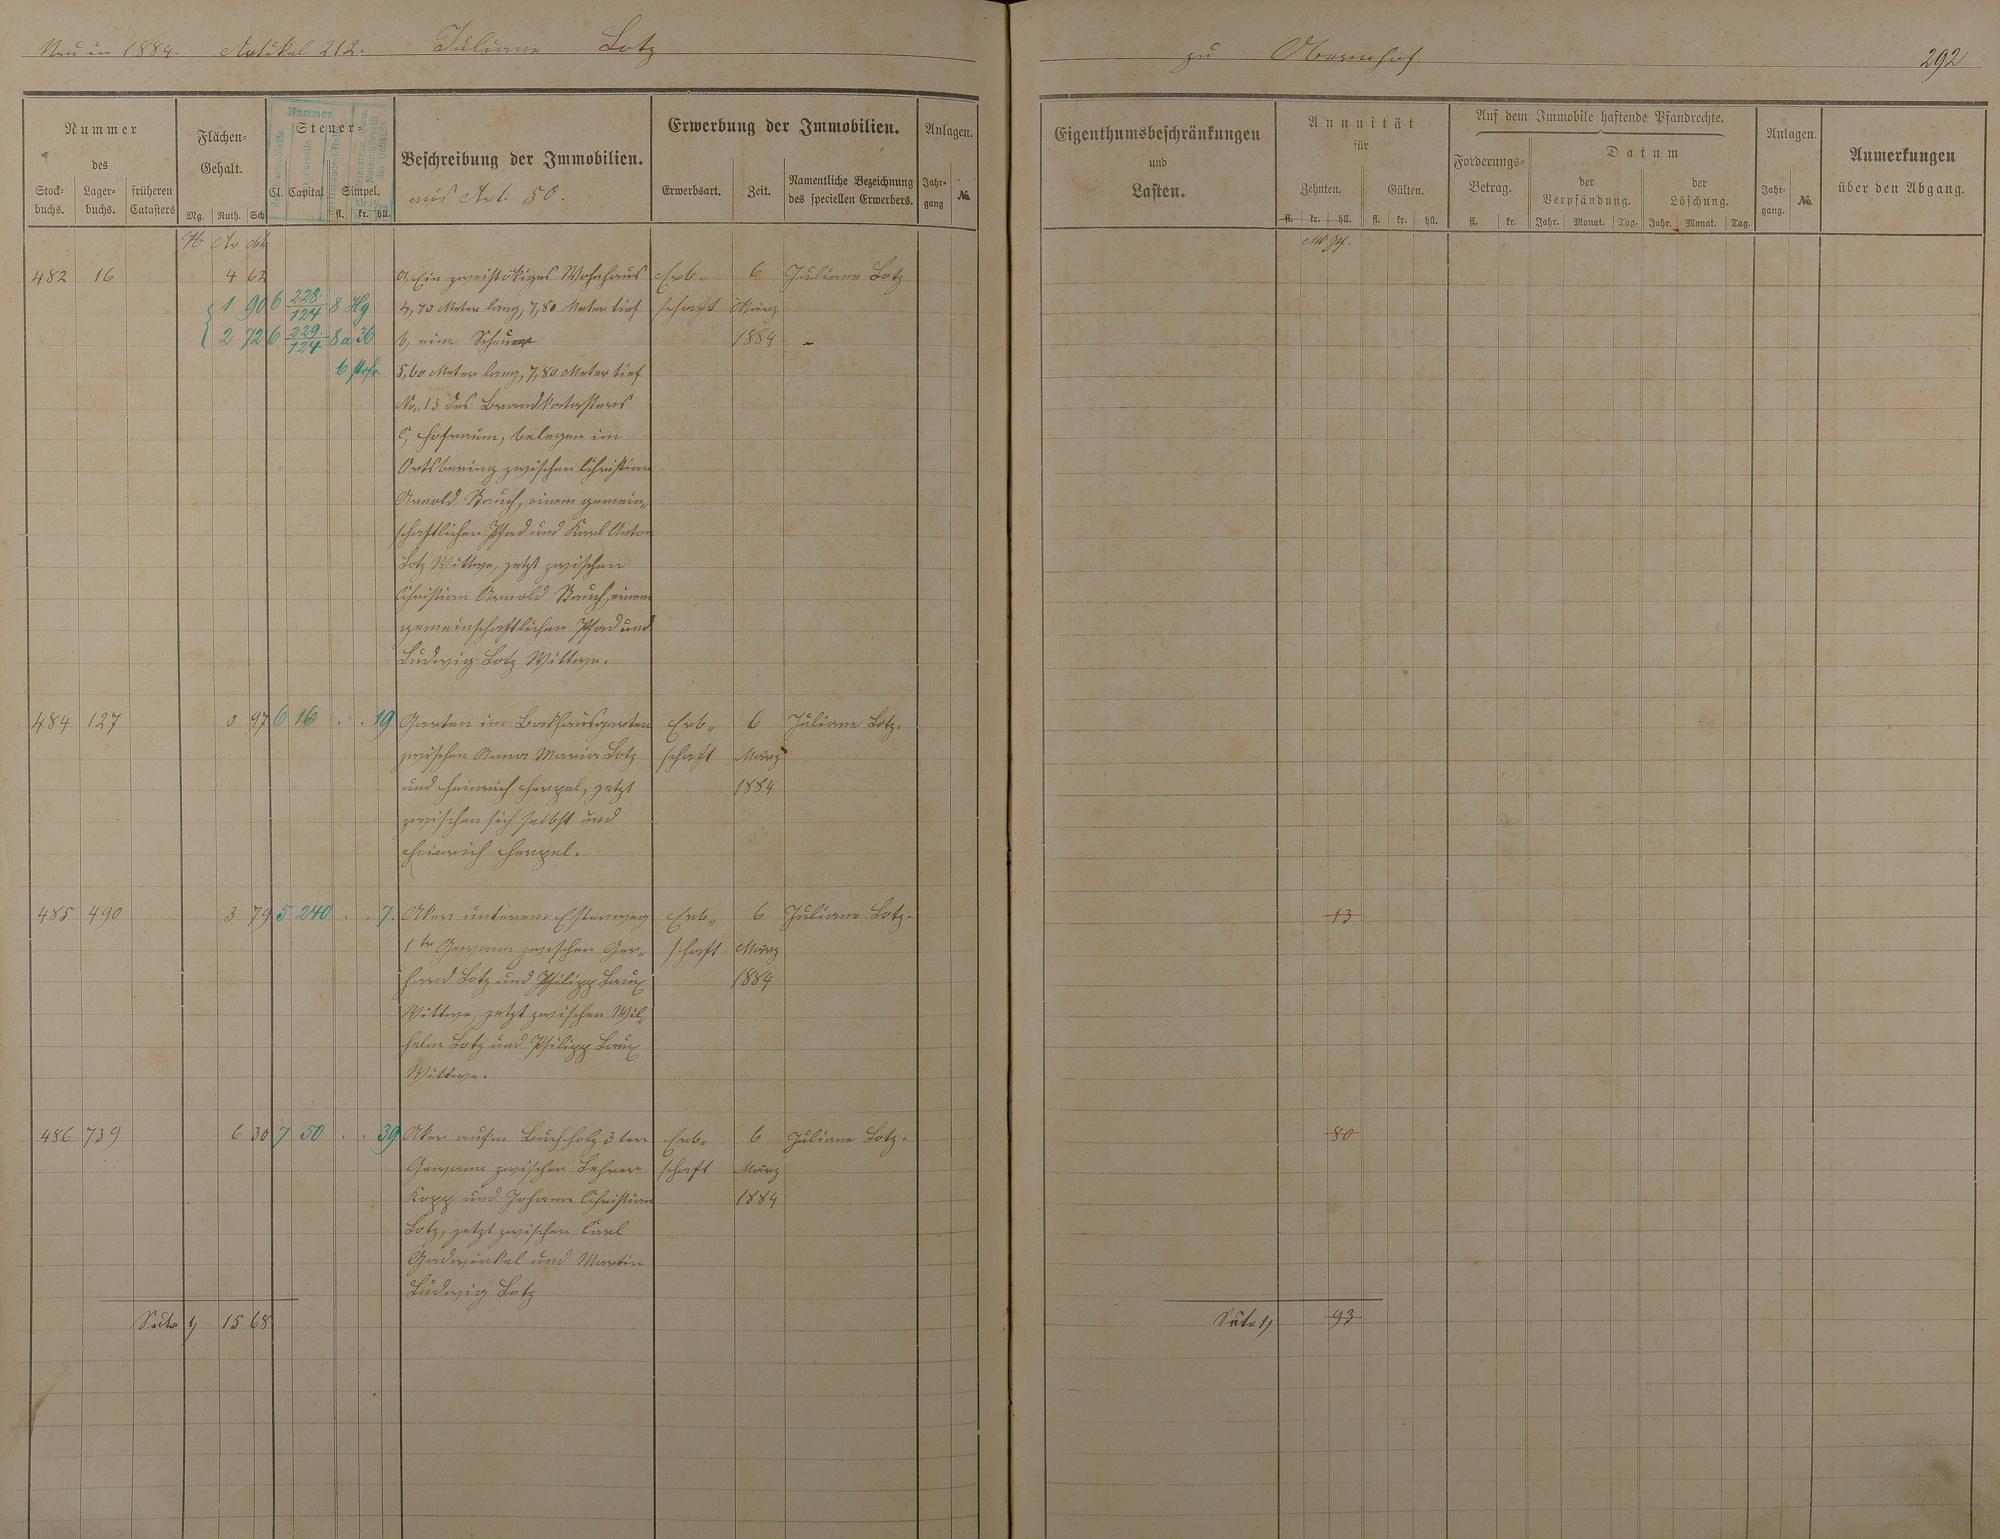 Neu in 1884. Artikel 212. Juliane Lotz
zu Obernhof. 292
Nummer
des
Stock-
buchs.
Lager-
buchs.
früheren
Catasters
Flächen-
Gehalt.
Mg. Ruth. Sch
Nummer
Steuer-
Cl. Capital Simpel.
fl. kr. hll.
Beschreibung der Immobilien.
aus Art. 50.
Erwerbung der Immobilien.
Erwerbsart. Zeit.
Namentliche Bezeichnung
des speciellen Erwerbers.
Anlagen.
Jahr-
gang
No.
Eigenthumsbeschränkungen
und
Lasten.
Annuität
für
Zehnten. Gülten.
fl. kr. hll. fl. kr. hll.
Auf dem Immobile haftende Pfandrechte.
Forderungs-
Betrag.
fl. kr.
Datum
der
Verpfändung.
der
Löschung.
Jahr. Monat. Tag. Jahr. Monat. Tag.
Anlagen.
Jahr-
gang.
No.
Anmerkungen
über den Abgang.
H Ar
482 16 4 62 a, Ein zweistökiges Wohnhaus Erb- 6 Juliane Lotz
1 90 6 228/124 8 Hg 4,70 Meter lang, 7,80 Meter tief schaft März
2 72 6 229/124 8 a 36 b, eine Scheuer 1884
6 5,60 Meter lang, 7,80 Meter tief
No. 13 des Brandkatasters
c, Hofraum, belegen im
Ortsbering zwischen Christian
Arnold Bauch, einem gemein-
schaftlichen Pfad und Karl Anton
Lotz Wittwe, jetzt zwischen
Christian Arnold Bauch, einem
gemeinschaftlichen Pfad und
Ludwig Lotz Wittwe.
484 127 0 97 6 16 . . 19 Garten im Bakhausgarten Erb- 6 Juliane Lotz.
zwischen Anna Maria Lotz schaft März
und Heinrich Hergel, jetzt 1884
zwischen sich selbst und
Heinrich Hergel.
485 490 3 79 5 240 . . 7. Aker unterem Esterweg Erb- 6 Juliane Lotz. 13
1te Gewann zwischen Ger- schaft März
hard Lotz und Philipp Laux 1884
Wittwe, jetzt zwischen Wil-
helm Lotz und Philipp Laux
Wittwe.
486 739 6 30 7 50 . . 39 Aker aufm Buchholz 3ten Erb- 6 Juliane Lotz. 80
Gewann zwischen Lehrer schaft März
Kopp und Johann Christian 1884
Lotz, jetzt zwischen Carl
Gadwinkel und Martin
Ludwig Lotz
Seite 1) 15 68 Seite 1) 93